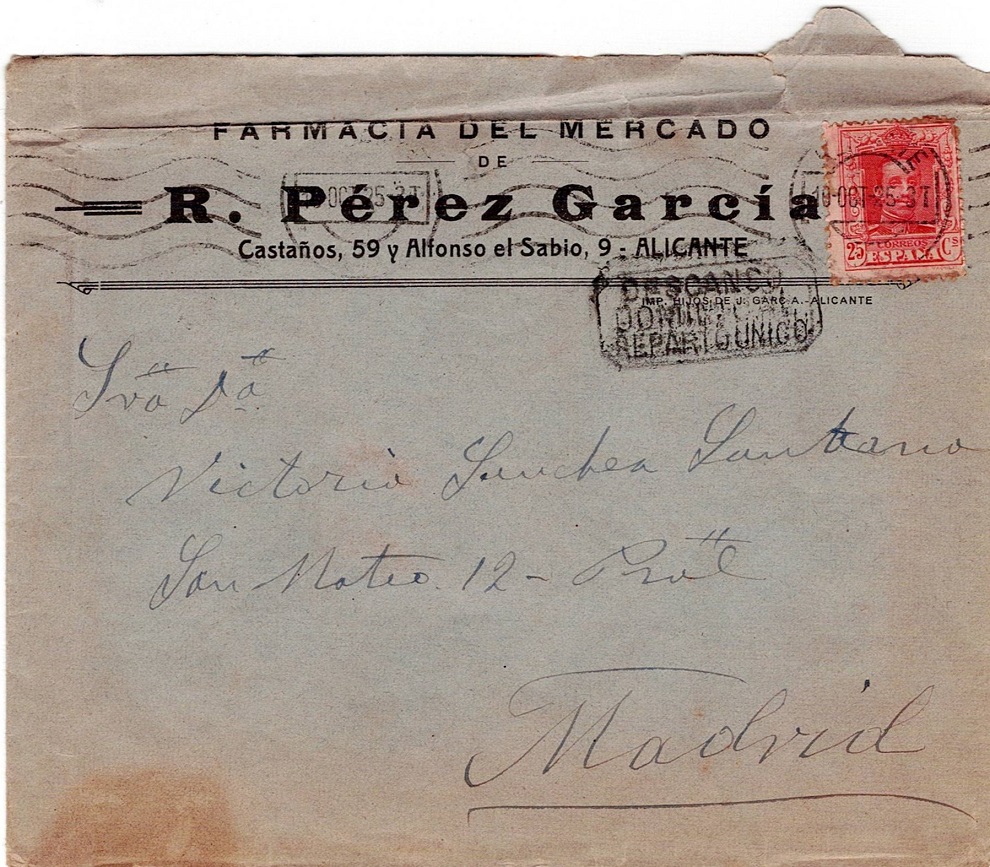 FARMACIA DEL MERCADO
DE
R. Pérez García
Castaños, 59 y Alfonso el Sabio, 9 - ALICANTE
IMP. HIJOS DE J. GARCIA.-ALICANTE
OCT 25-3T
19-OCT 25-3T
CORREOS
25 ESPAÑA Cs
DESCANSO
DOMINICAL
REPARTO UNICO
Sra Da
Victoria Sanchez
San Mateo 12 - Pral
Madrid